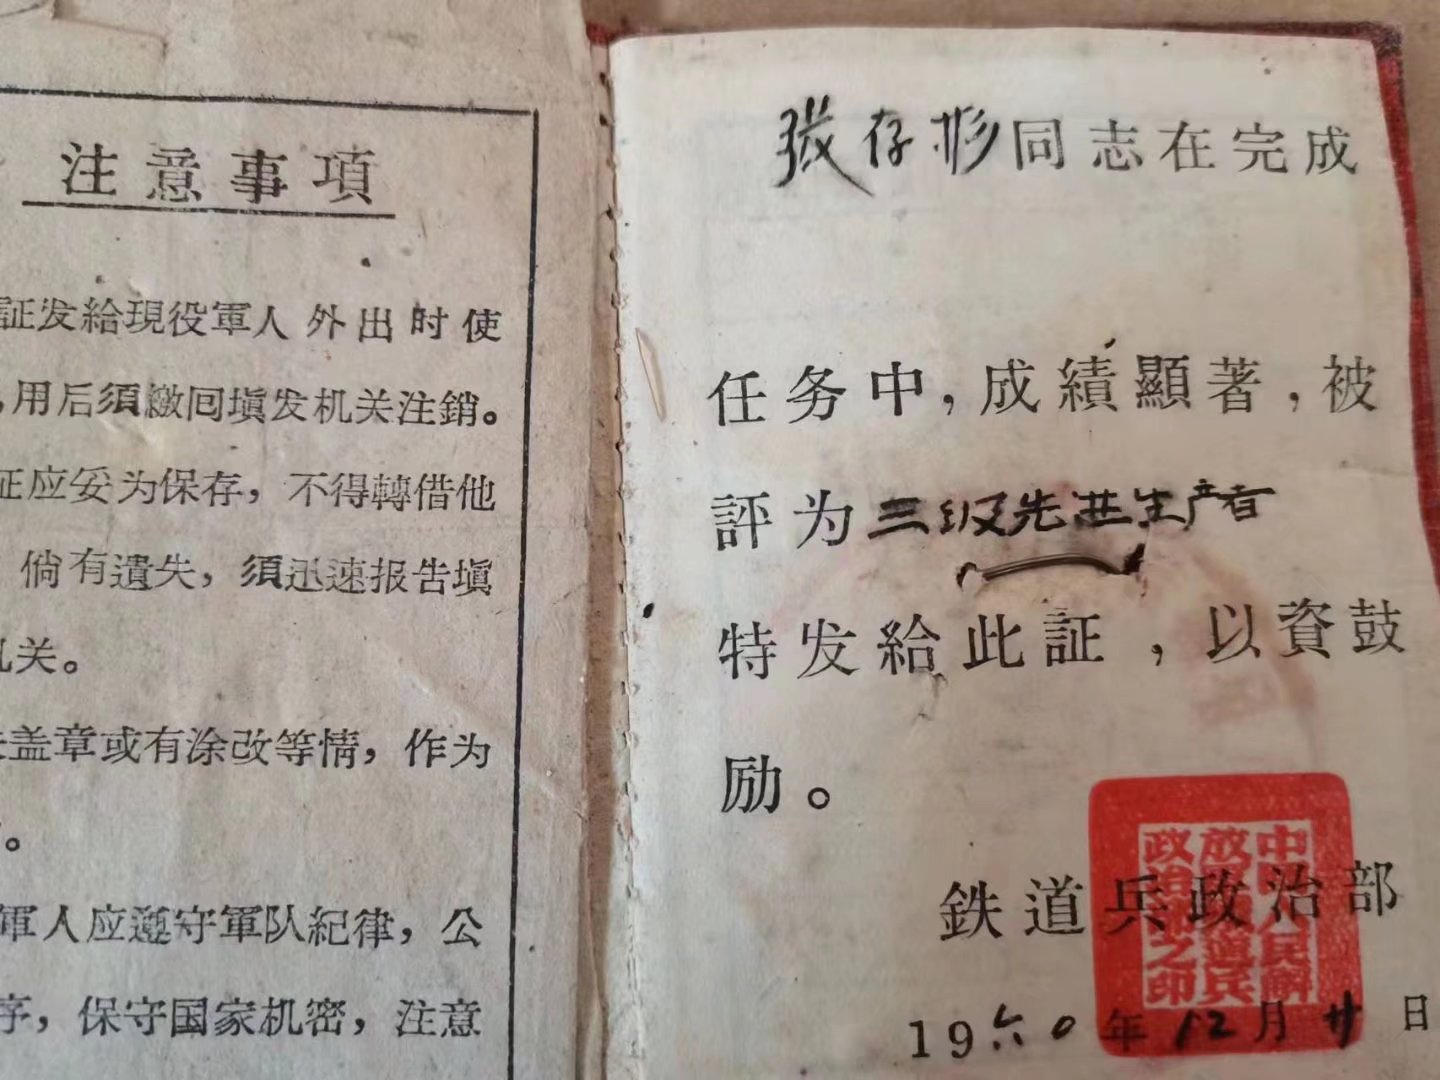 注意事項
証发給現役軍人外出时使
，用后須繳回塡发机关注銷。
証应妥为保存，不得轉借他
倘有遺失，須迅速报告塡
机关。
盖章或有涂改等情，作为
。
軍人应遵守軍队紀律，公
序，保守国家机密，注意
張存彬同志在完成
任务中，成績顯著，被
評为三级先进生产者
特发給此証，以資鼓
励。
鉄道兵政治部
1960年12月廿日
中国人民解
放軍鉄道兵
政治部之印